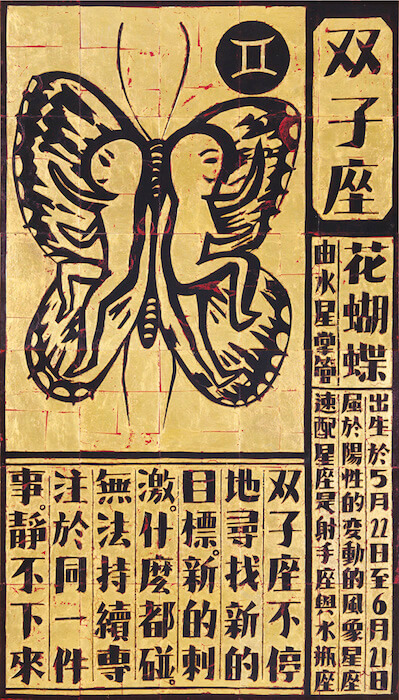 双子座
花蝴蝶
由水星掌管
出生於5月22日至6月21日
属於陽性的変動的風象星座
速配星座是射手座與水瓶座
双子座不停
地尋找新的
目標。新的刺
激。什麼都碰。
無法持續專
注於同一件
事。靜不下來